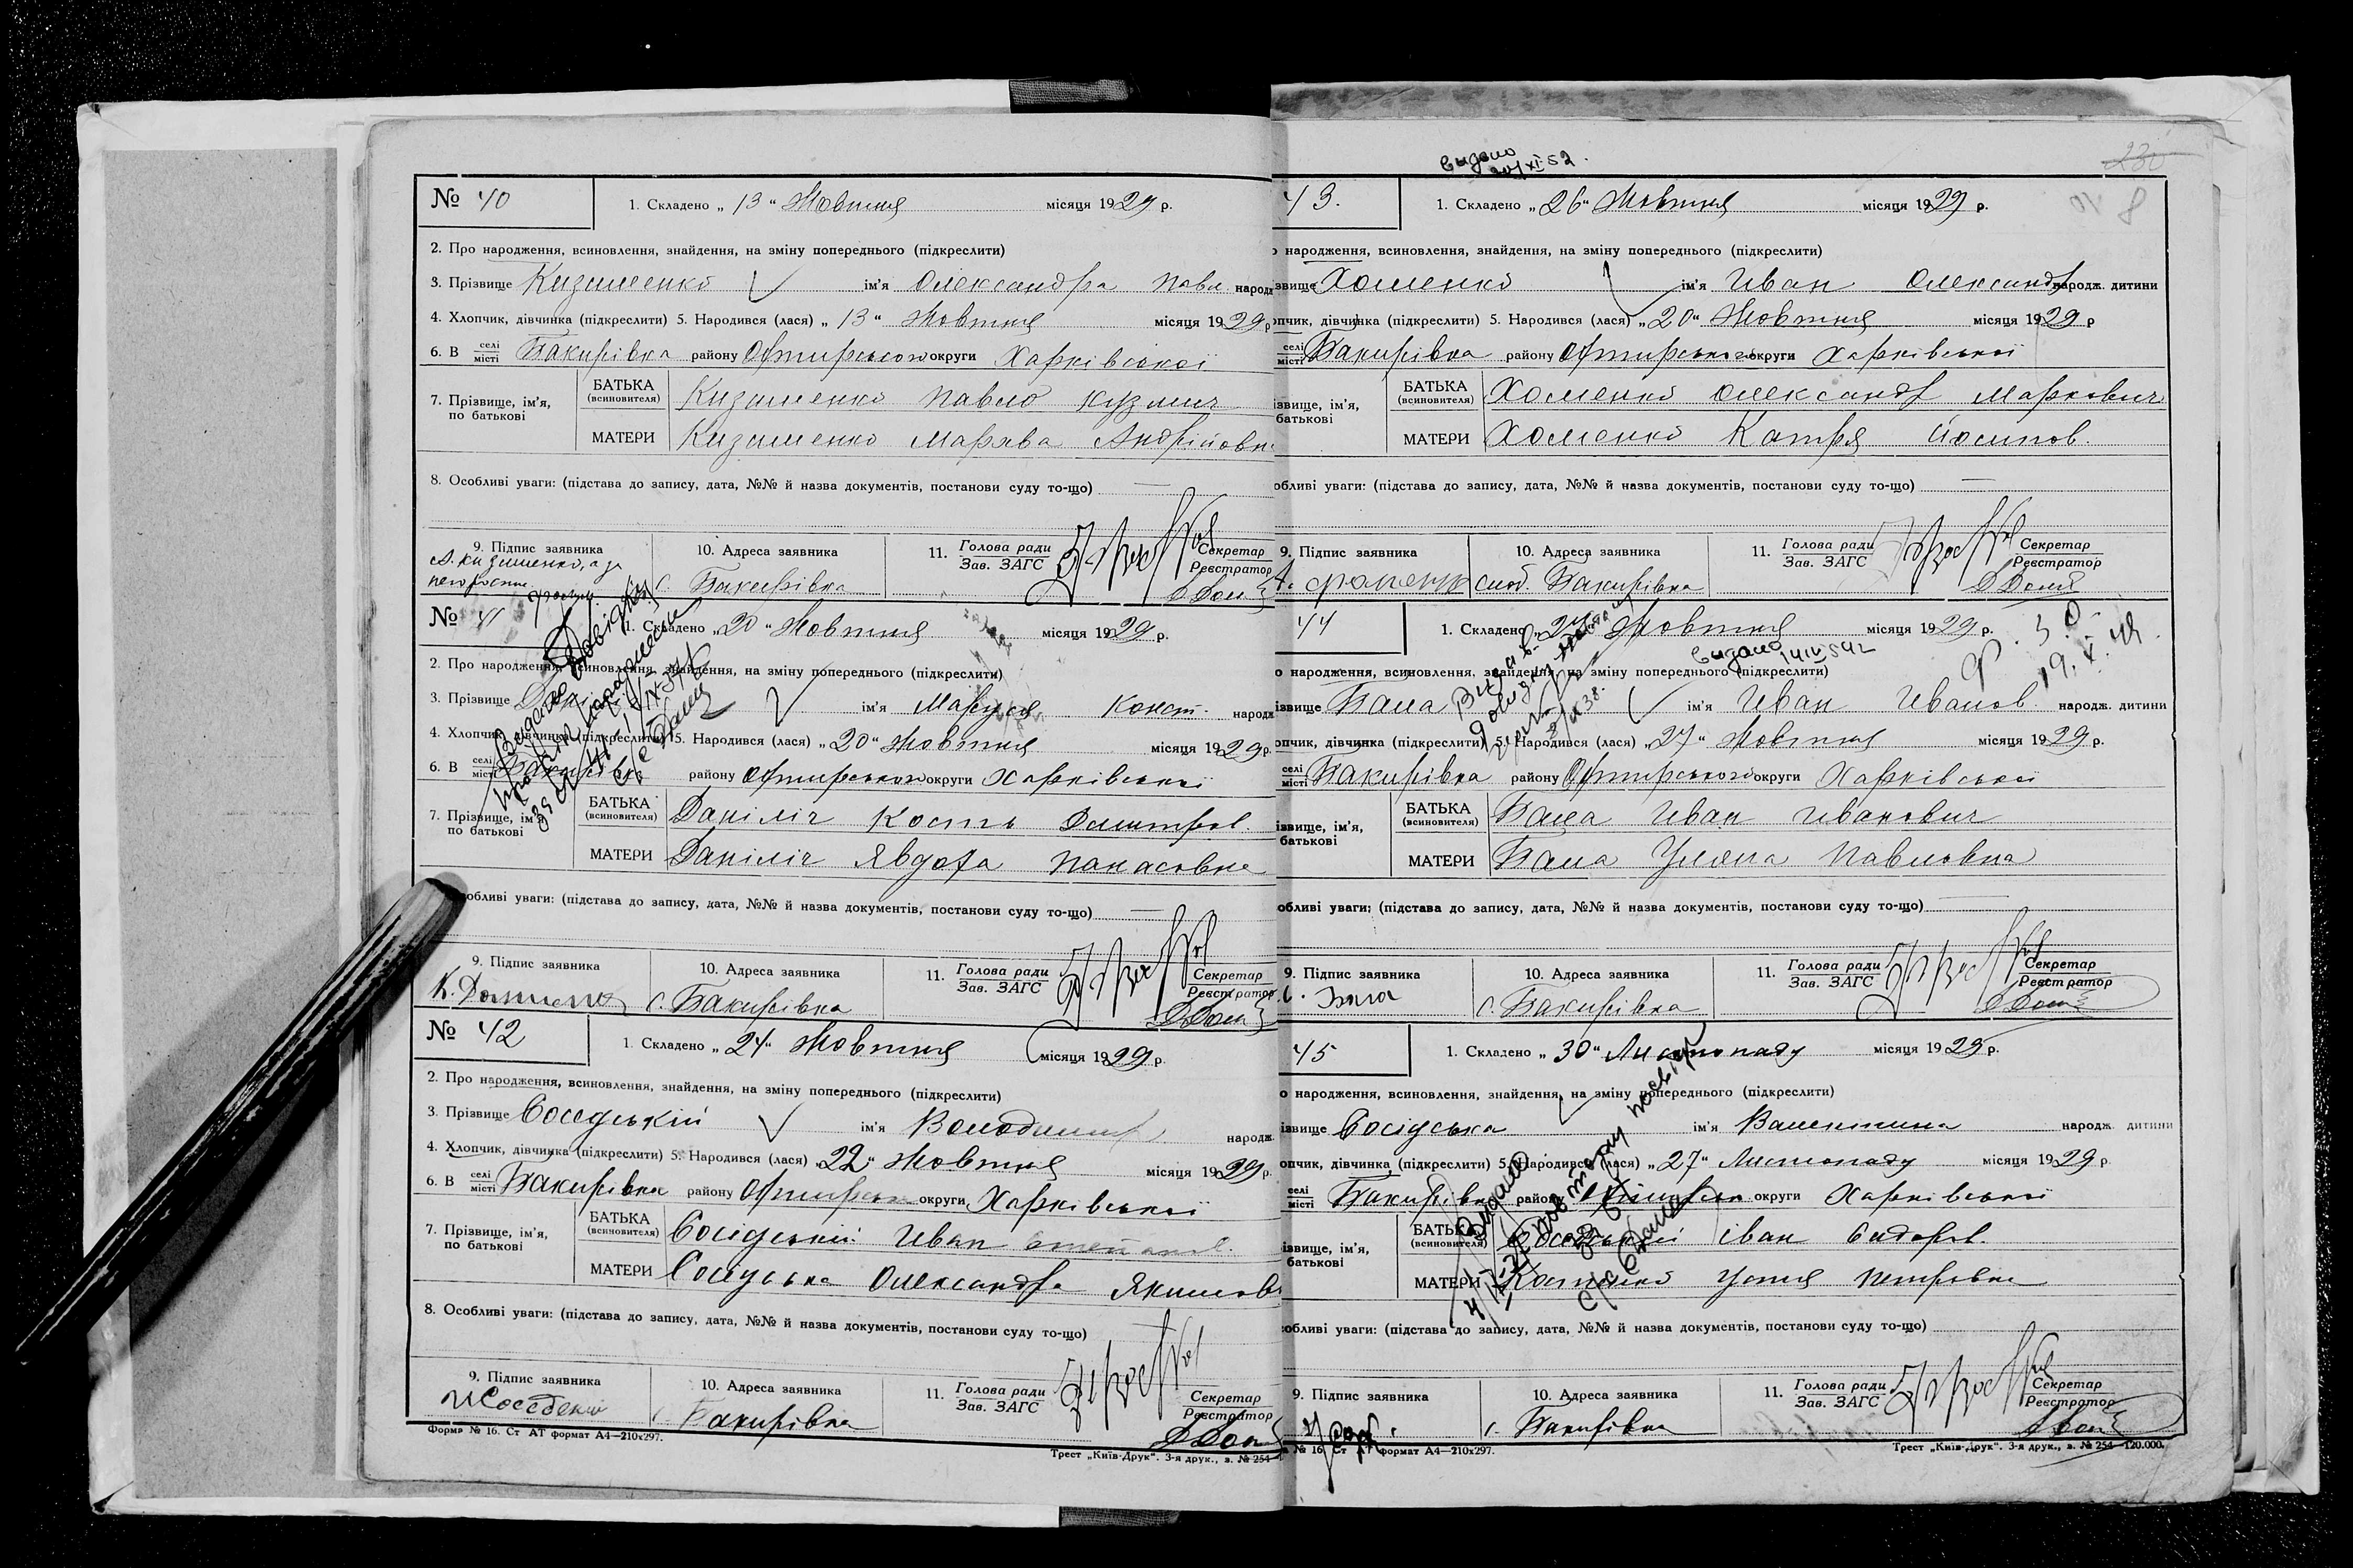 № 40
1. Складено „ 13 “ Жовтня місяця 1929 р.
2. Про народження, всиновлення, знайдення, на зміну попереднього (підкреслити)
3. Прізвище Кизименко ім'я Олександра Павл народж
4. Хлопчик, дівчинка (підкреслити) 5. Народився (лася) „ 13 “ Жовтня місяця 1929 р
6. В селі місті Бакирівка району Охтирського округи Харківської
7. Прізвище, ім'я, по батькові
БАТЬКА (всиновителя) Кизименко Павло Кузмич
МАТЕРИ Кизименко Андрійовн
8. Особливі уваги: (підстава до запису, дата, №№ й назва документів, постанови суду то-що)
9. Підпис заявника
10. Адреса заявника
11. Голова ради Зав. ЗАГС
Секретар Реєстратор
с. Бакирівка
№ 41
1. Складено „ 20 “ Жовтня місяця 1929 р.
2. Про народження, всиновлення, знайдення, на зміну попереднього (підкреслити)
3. Прізвище ім'я Маруся Конст. народж
4. Хлопчик, дівчинка (підкреслити) 5. Народився (лася) „ 20 “ Жовтня місяця 1929 р.
6. В селі місті Бакирівка району Охтирського округи Харківської
7. Прізвище, ім'я, по батькові
БАТЬКА (всиновителя) Даніліч Кость Дмитров.
МАТЕРИ Даніліч Явдоха Панасовна
обливі уваги: (підстава до запису, дата, №№ й назва документів, постанови суду то-що)
9. Підпис заявника
10. Адреса заявника
11. Голова ради Зав. ЗАГС
Секретар Реєстратор
с. Бакирівка
№ 42
1. Складено „ 24 “ Жовтня місяця 1929 р.
2. Про народження, всиновлення, знайдення, на зміну попереднього (підкреслити)
3. Прізвище Соседський ім'я Володимир народж.
4. Хлопчик, дівчинка (підкреслити) 5. Народився (лася) „ 22 “ Жовтня місяця 1929 р.
6. В селі місті Бакирівка району Охтирськ округи Харківської
7. Прізвище, ім'я, по батькові
БАТЬКА (всиновителя) Сосідський Иван Степанов.
МАТЕРИ Сосідська Олександра Якимов
8. Особливі уваги: (підстава до запису, дата, №№ й назва документів, постанови суду то-що)
9. Підпис заявника
10. Адреса заявника
11. Голова ради Зав. ЗАГС
Секретар Реєстратор
с. Бакирівка
Форма № 16. Ст АТ формат А4—210х297.
Трест „Київ-Друк“. 3-я друк., з. № 254
видано
20/XI 52.
230
43.
1. Складено „ 26 “ Жовтня місяця 1929 р.
о народження, всиновлення, знайдення, на зміну попереднього (підкреслити)
звище Хоменко ім'я Иван Олександр народж. дитини
опчик, дівчинка (підкреслити) 5. Народився (лася) „ 20 “ Жовтня місяця 1929 р
селі місті Бакирівка району Охтирського округи Харківської
ізвище, ім'я, батькові
БАТЬКА (всиновителя) Хоменко Олександр Маркович
МАТЕРИ Хоменко Катря Йосипов.
обливі уваги: (підстава до запису, дата, №№ й назва документів, постанови суду то-що)
9. Підпис заявника
10. Адреса заявника
11. Голова ради Зав. ЗАГС
Секретар Реєстратор
слоб. Бакирівка
44
1. Складено „ 27 “ Жовтня місяця 1929 р.
видано
о народження, всиновлення, знайдення, на зміну попереднього (підкреслити)
ізвище Бала ім'я Иван Иванов. народж. дитини
опчик, дівчинка (підкреслити) 5. Народився (лася) „ 27 “ Жовтня місяця 1929 р.
селі місті Бакирівка району Охтирського округи Харківської
ізвище, ім'я, батькові
БАТЬКА (всиновителя) Бала Иван Иванович
МАТЕРИ Бала Уляна Павловна
обливі уваги: (підстава до запису, дата, №№ й назва документів, постанови суду то-що)
9. Підпис заявника
10. Адреса заявника
11. Голова ради Зав. ЗАГС
Секретар Реєстратор
с. Бакирівка
45
1. Складено „ 30 “ Листопаду місяця 1929 р.
о народження, всиновлення, знайдення, на зміну попереднього (підкреслити)
ізвище Сосідська ім'я Валентина народж. дитини
опчик, дівчинка (підкреслити) 5. Народився (лася) „ 27 “ Листопаду місяця 1929 р.
селі місті Бакирівка району округи Харківської
ізвище, ім'я, батькові
БАТЬКА (всиновителя) Сосідський Іван Сидоров
МАТЕРИ Устя Петровна
собливі уваги: (підстава до запису, дата, №№ й назва документів, постанови суду то-що)
9. Підпис заявника
10. Адреса заявника
11. Голова ради Зав. ЗАГС
Секретар Реєстратор
с. Бакирівка
а № 16. Ст АТ формат А4—210х297.
Трест „Київ-Друк“. 3-я друк., з. № 254—120.000.